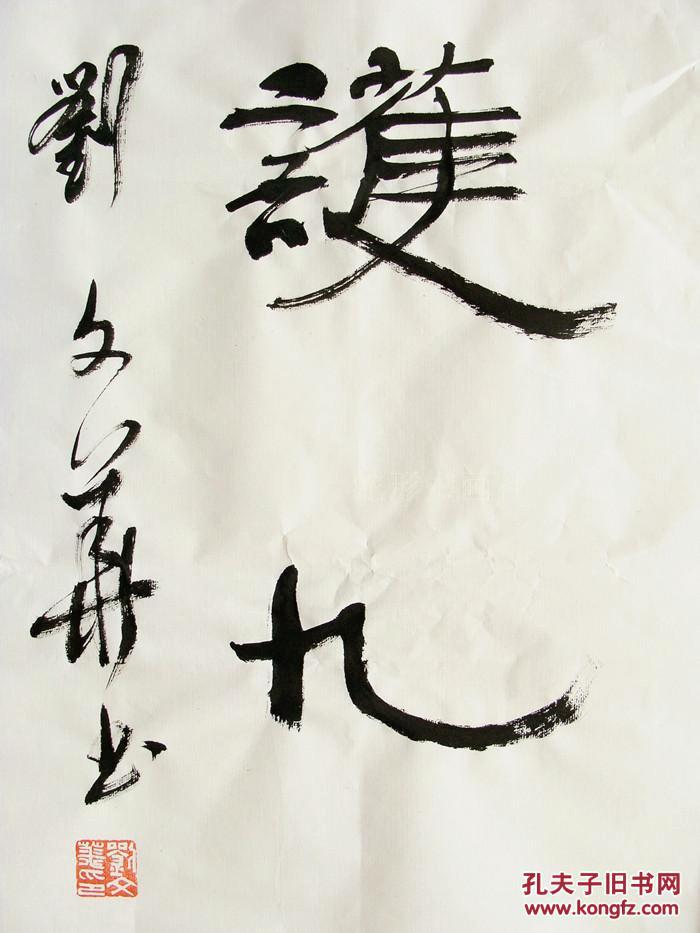 護
九
劉文華書
孔夫子旧书网
www.kongfz.com